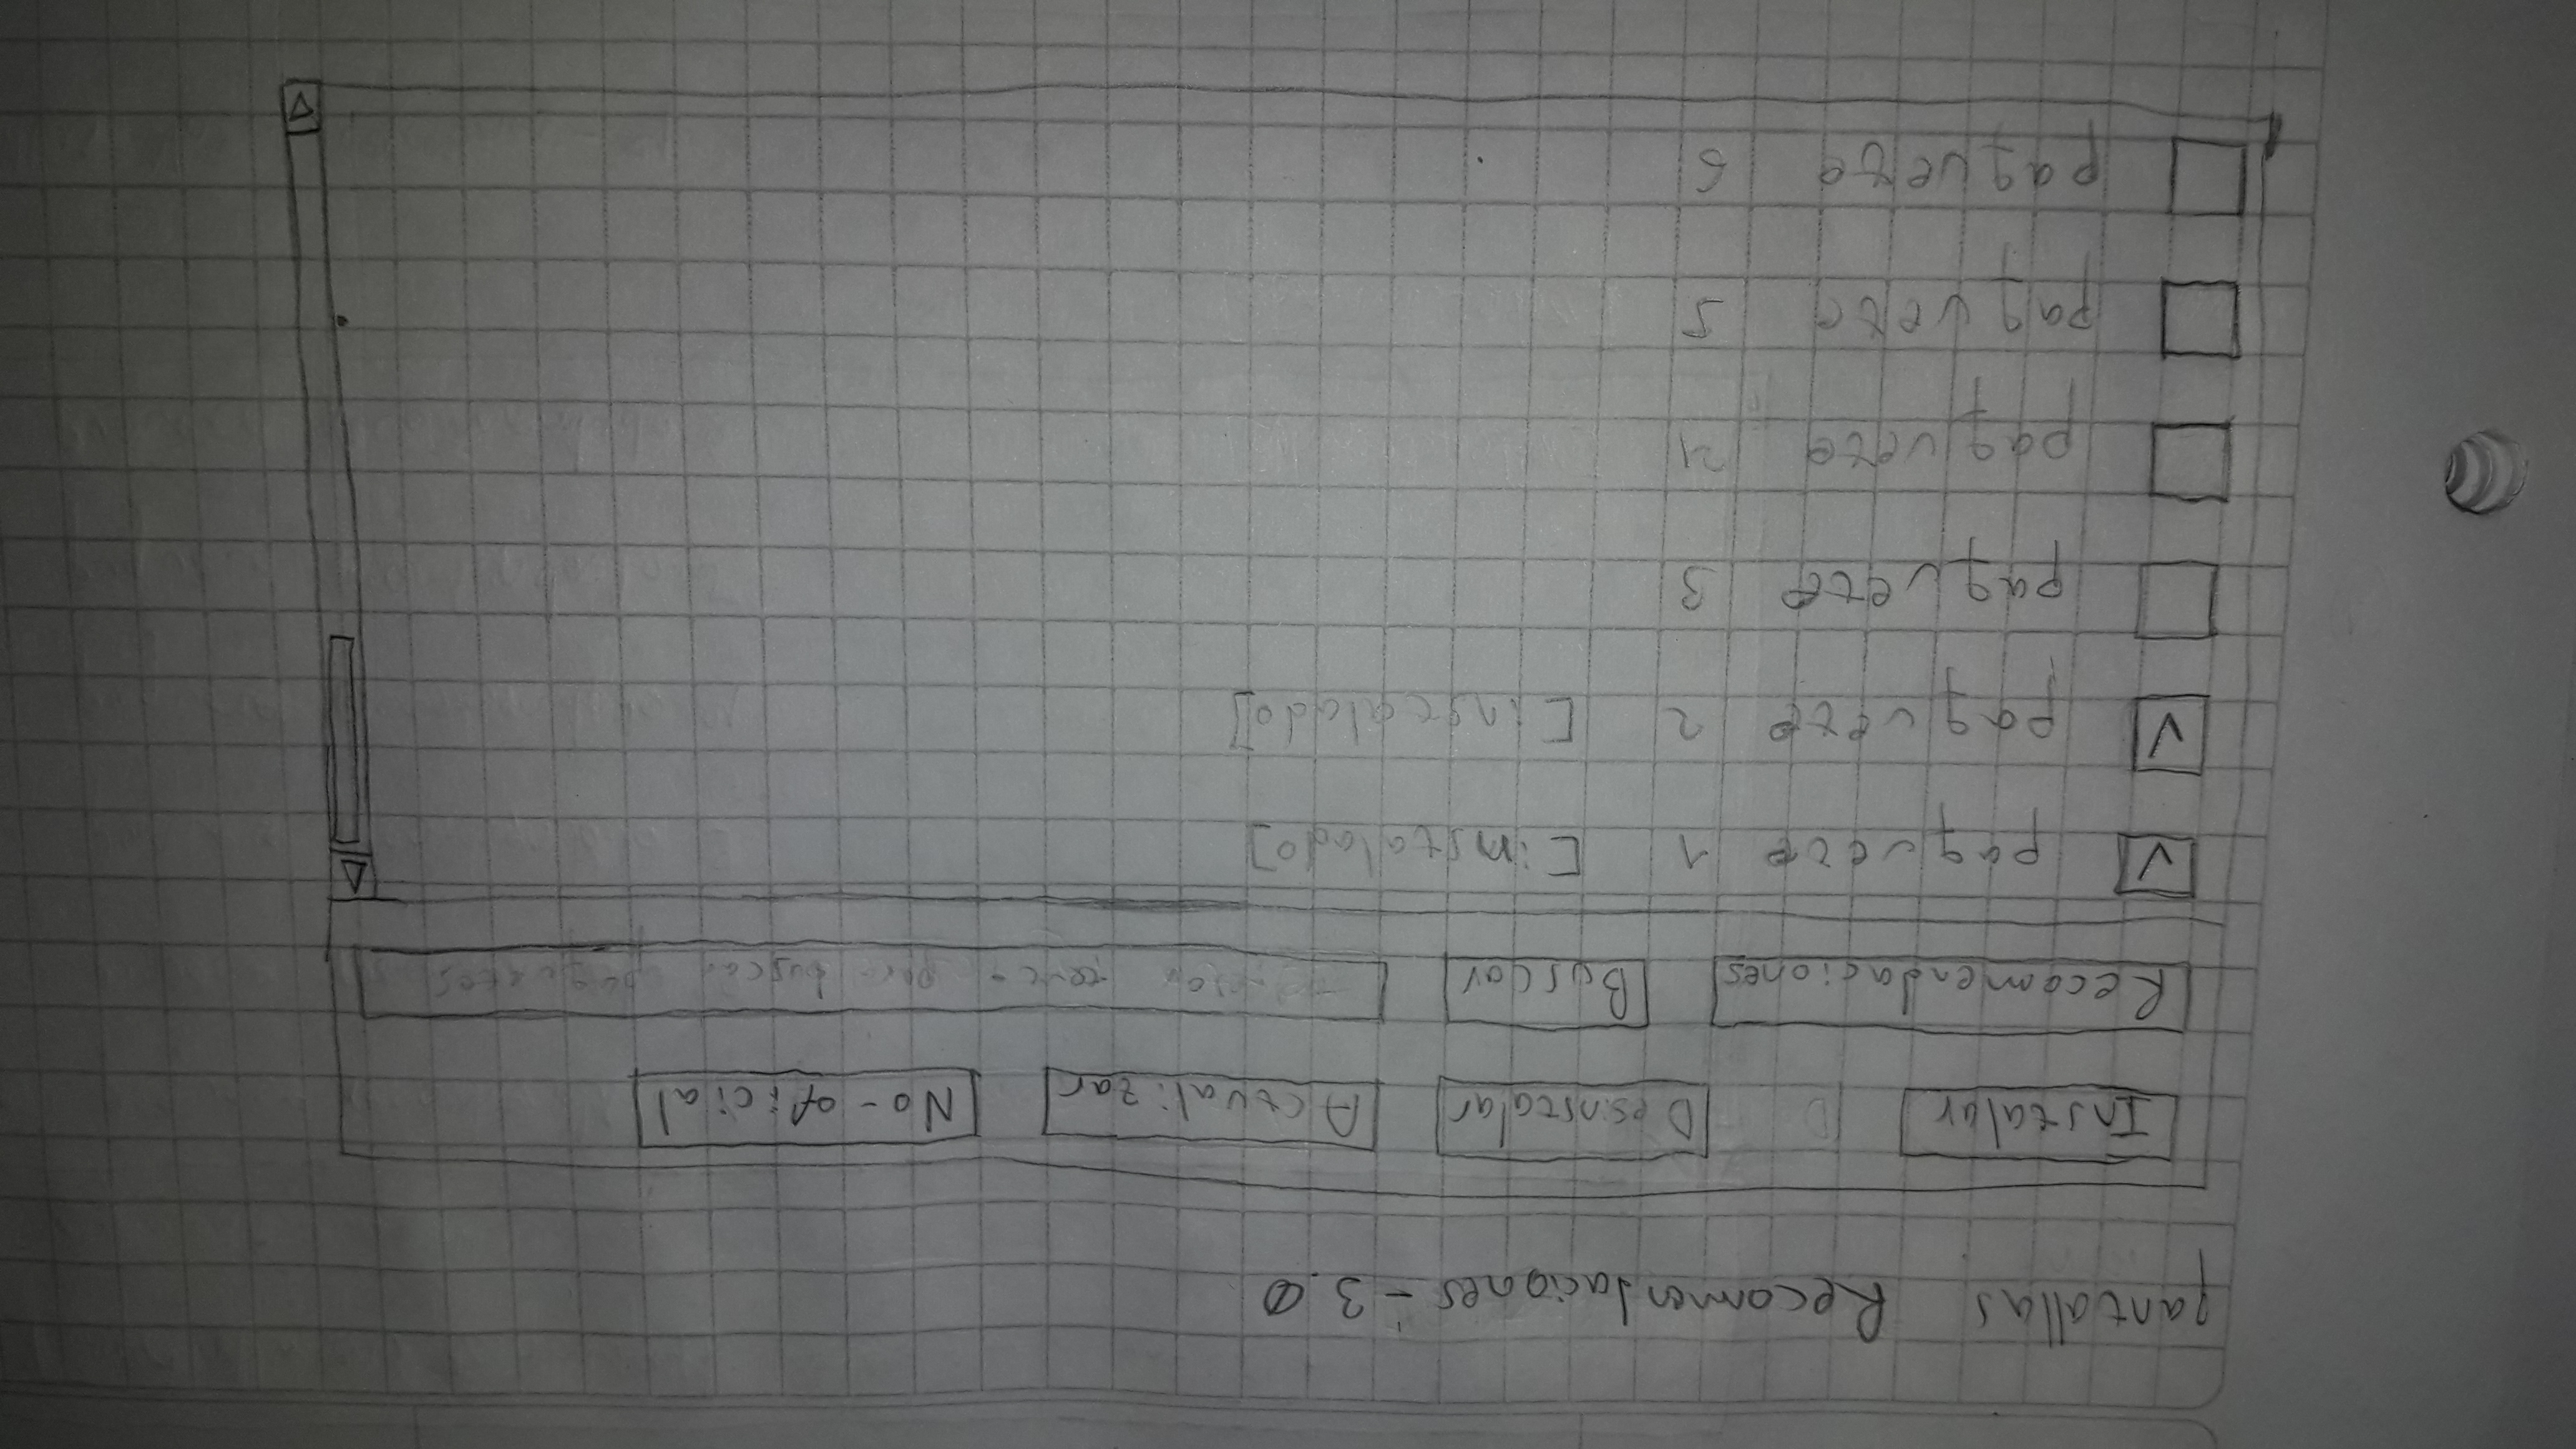 pantallas Recomendaciones - 3.0
Instalar D Desinstalar Actualizar No-oficial
Recomendaciones Buscar para buscar paquetes
paquete 1 [instalado]
paquete 2 [instalado]
paquete 3
paquete 4
paquete 5
paquete 6